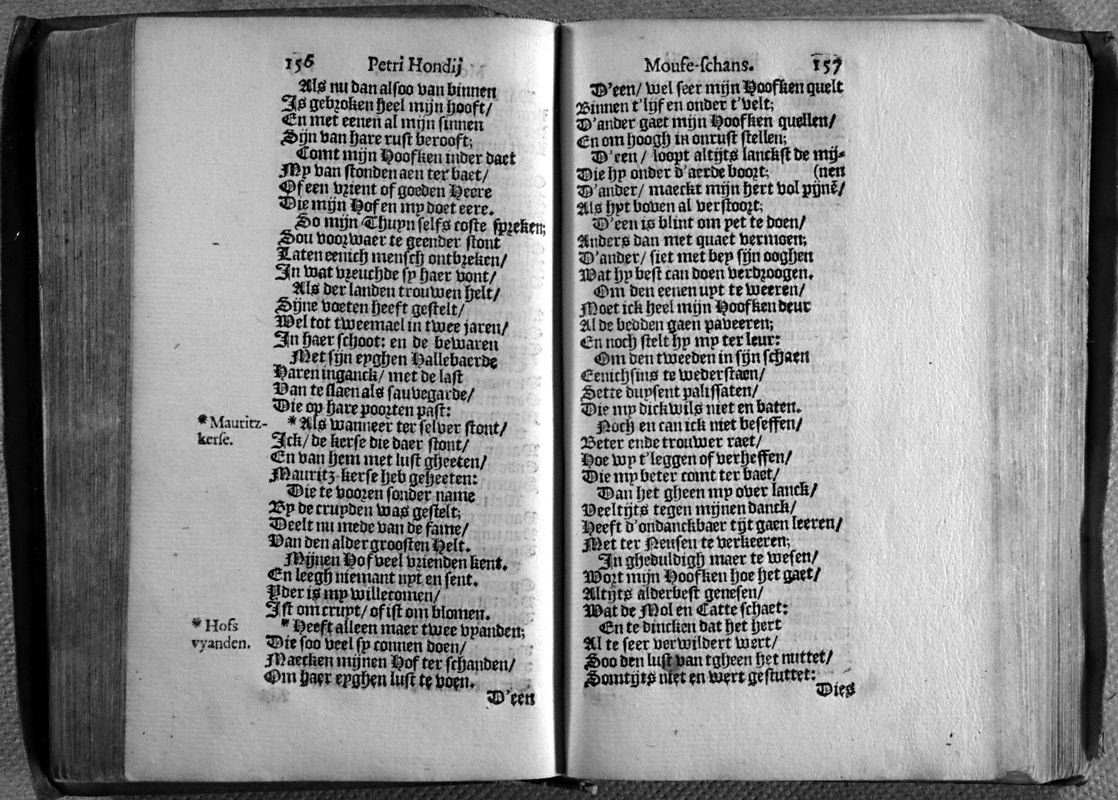 156 Petri Hondij
Als nu dan alsoo van binnen
Is gebroken heel mijn hooft/
En met eenen al mijn sinnen
Sijn van hare rust berooft;
Comt mijn Hoofken inder daet
My van stonden aen ter baet/
Of een vrient of goeden Heere
Die mijn Hof en my doet eere.
So mijn Thuyn selfs coste spreken;
Sou voorwaer te geender stont
Laten eenich mensch ontbreken/
In wat vreuchde sy haer vont/
Als der landen trouwen helt/
Sijne voeten heeft gestelt/
Wel tot tweemael in twee jaren/
In haer schoot: en de bewaren
Met sijn eyghen Hallebaerde
Haren inganck/ met de last
Van te slaen als sauvegarde/
Die op hare poorten past:
* Mauritz-
kerse.
* Als wanneer ter selver stont/
Ick/ de kerse die daer stont/
En van hem met lust gheeten/
Mauritz-kerse heb geheeten:
Die te vooren sonder name
By de cruyden was gestelt;
Deelt nu mede van de fame/
Van den alder grootsten Helt.
Mijnen Hof veel vrienden kent.
En leegh niemant uyt en sent.
Yder is my willecomen/
Ist om cruyt/ of ist om blomen.
* Hofs
vyanden.
* Heeft alleen maer twee vyanden;
Die soo veel sy connen doen/
Maecken mijnen Hof ter schanden/
Om haer eyghen lust te voen.
D'een
Mouse-schans. 157
D'een/ wel seer mijn Hoofken quelt
Binnen t'lijf en onder t'velt;
D'ander gaet mijn Hoofken quellen/
En om hoogh in onrust stellen;
D'een/ loopt altijts lanckst de mij-
Die hy onder d'aerde boort; (nen
D'ander/ maeckt mijn hert vol pijnē/
Als hyt boven al verstoort;
D'een is blint om yet te doen/
Anders dan met quaet vermoen;
D'ander/ siet met bey sijn ooghen
Wat hy best can doen verdroogen.
Om den eenen uyt te weeren/
Moet ick heel mijn Hoofken deur
Al de bedden gaen paveeren;
En noch stelt hy my ter leur:
Om den tweeden in sijn schaen
Eenichsins te wederstaen/
Sette duysent palissaten/
Die my dickwils niet en baten.
Noch en can ick niet beseffen/
Beter ende trouwer raet/
Hoe wy t'leggen of verheffen/
Die my beter comt ter baet/
Dan het gheen my over lanck/
Veeltijts tegen mijnen danck/
Heeft d'ondanckbaer tijt gaen leeren/
Met ter Neusen te verkeeren;
In gheduldigh maer te wesen/
Wort mijn Hoofken hoe het gaet/
Altijts alderbest genesen/
Wat de Mol en Catte schaet:
En te dincken dat het hert
Al te seer verwildert wert/
Soo den lust van tgheen het nuttet/
Somtijts niet en wert gestuttet:
Dies